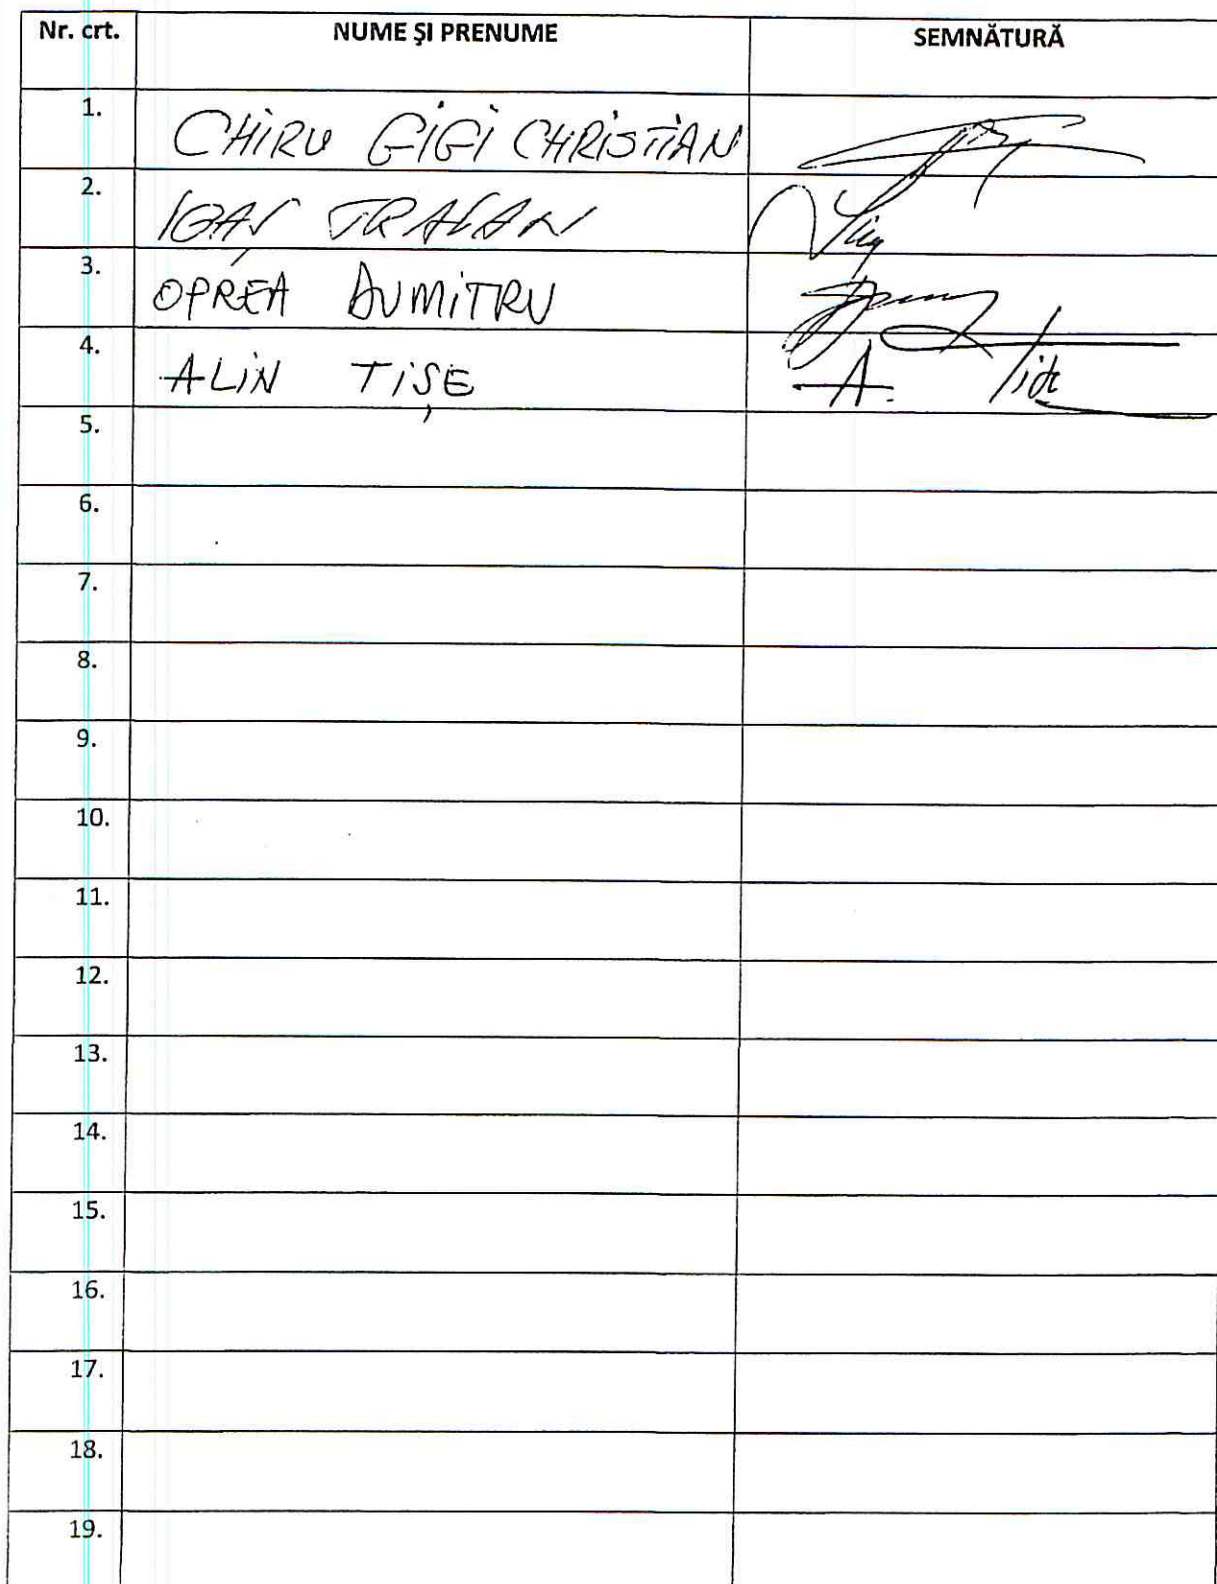 Nr. crt. NUME ȘI PRENUME SEMNĂTURĂ
1. CHIRU GIGI CHRISTIAN
2. IGAȘ TRAIAN
3. OPREA DUMITRU
4. ALIN TIȘE
5.
6.
7.
8.
9.
10.
11.
12.
13.
14.
15.
16.
17.
18.
19.